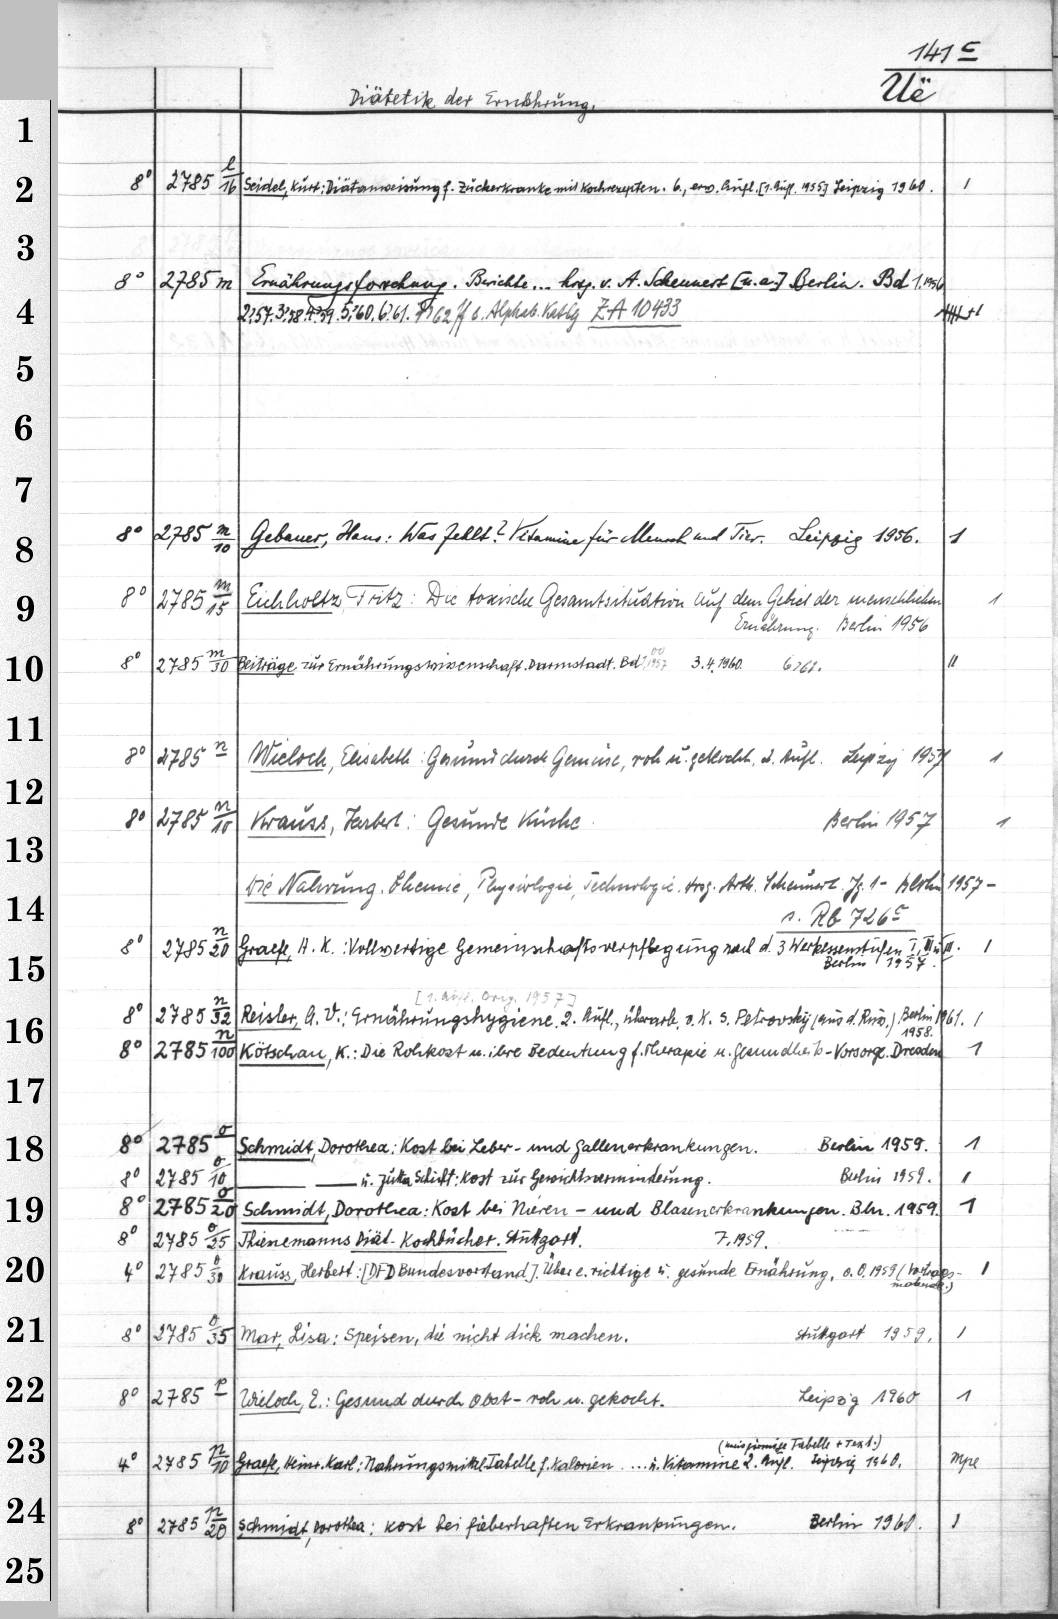 141 c
Uë
Diätetik der Ernährung.
1
2 8° 2785 l/16 Seidel, Kurt: Diätanweisung f. Zuckerkranke mit Kochrezepten. 6., erw. Aufl. [1. Aufl. 1955] Leipzig 1960. 1
3
8° 2785 m Ernährungsforschung. Berichte... hrsg. v. A. Scheunert [u.a.] Berlin. Bd 1.1956
4 2.57. 3.58. 4.59. 5.60. 6.61. 7.62 ff s. Alphab. Katlg ZA 10433
5
6
7
8 8° 2785 m/10 Gebauer, Hans: Was fehlt? Vitamine für Mensch und Tier. Leipzig 1956. 1
9 8° 2785 m/15 Eichholtz, Fritz: Die toxische Gesamtsituation auf dem Gebiet der menschlichen 1
Ernährung. Berlin 1956
10 8° 2785 m/30 Beiträge zur Ernährungswissenschaft. Darmstadt. Bd 1957 3.4.1960. 6.1961. 11
11
8° 2785 n Wieloch, Elisabeth: Gesund durch Gemüse, roh u. gekocht. 2. Aufl. Leipzig 1957 1
12
8° 2785 n/10 Krauss, Herbert: Gesunde Küche Berlin 1957 1
13
Die Nahrung. Chemie, Physiologie, Technologie. Hrsg. Arth. Scheunert. Jg. 1- Berlin 1957-
14 s. Rb 726 c
8° 2785 n/20 Graefe, H. K.: Vollwertige Gemeinschaftsverpflegung nach d. 3 Werkessenstufen I, II u. III. 1
15 Berlin 1957.
[1. Aufl. Orig. 1957]
8° 2785 n/32 Reisler, A. V.: Ernährungshygiene. 2. Aufl., überarb. v. K. S. Petrovskij (aus d. Russ.) Berlin 1961. 1
16 1958.
8° 2785 n/100 Kötschau, K.: Die Rohkost u. ihre Bedeutung f. Therapie u. Gesundheits-Vorsorge. Dresden 1
17
18 8° 2785 o Schmidt, Dorothea: Kost bei Leber- und Gallenerkrankungen. Berlin 1959. 1
8° 2785 o/10 —— —— u. Jutta Schift: Kost zur Gewichtsverminderung. Berlin 1959. 1
19 8° 2785 o/20 Schmidt, Dorothea: Kost bei Nieren- und Blasenerkrankungen. Bln. 1959. 1
8° 2785 o/25 Thienemanns Diät-Kochbücher. Stuttgart. 7.1959.
20 4° 2785 o/30 Krauss, Herbert: [DFD Bundesvorstand]. Über e. richtige u. gesunde Ernährung. o.O. 1959 (Vortrags- 1
21 8° 2785 o/35 Mar, Lisa: Speisen, die nicht dick machen. Stuttgart 1959. 1
22 8° 2785 p Wieloch, E.: Gesund durch Obst - roh u. gekocht. Leipzig 1960 1
23 Tabelle + Text.)
4° 2785 p/10 Graefe, Heinr. Karl: Nahrungsmittel Tabelle f. Kalorien ... u. Vitamine 2. Aufl. Leipzig 1960. Mpe
24 8° 2785 p/20 Schmidt, Dorothea: Kost bei fieberhaften Erkrankungen. Berlin 1960. 1
25